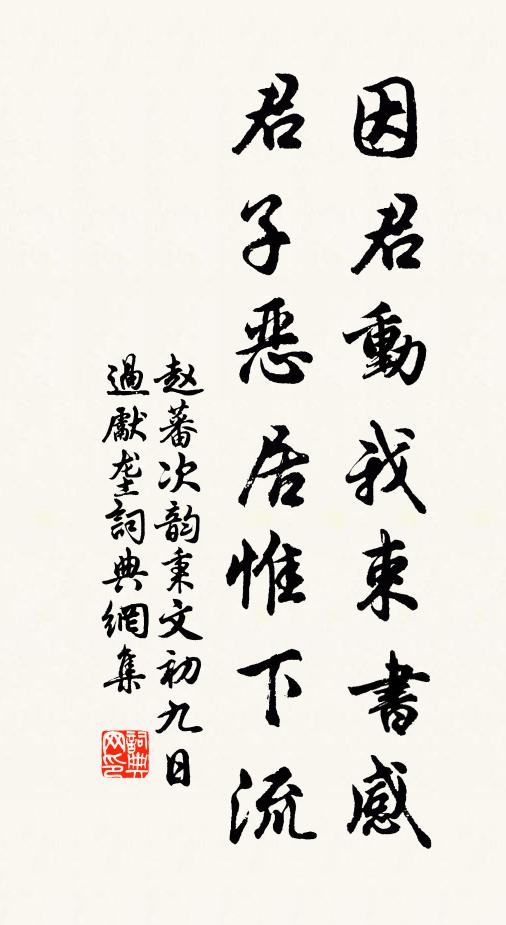 因君動我束書感
君子惡居惟下流
赵蕃次韵秉文初九日
過獻垄詞典網集
詞典
网印